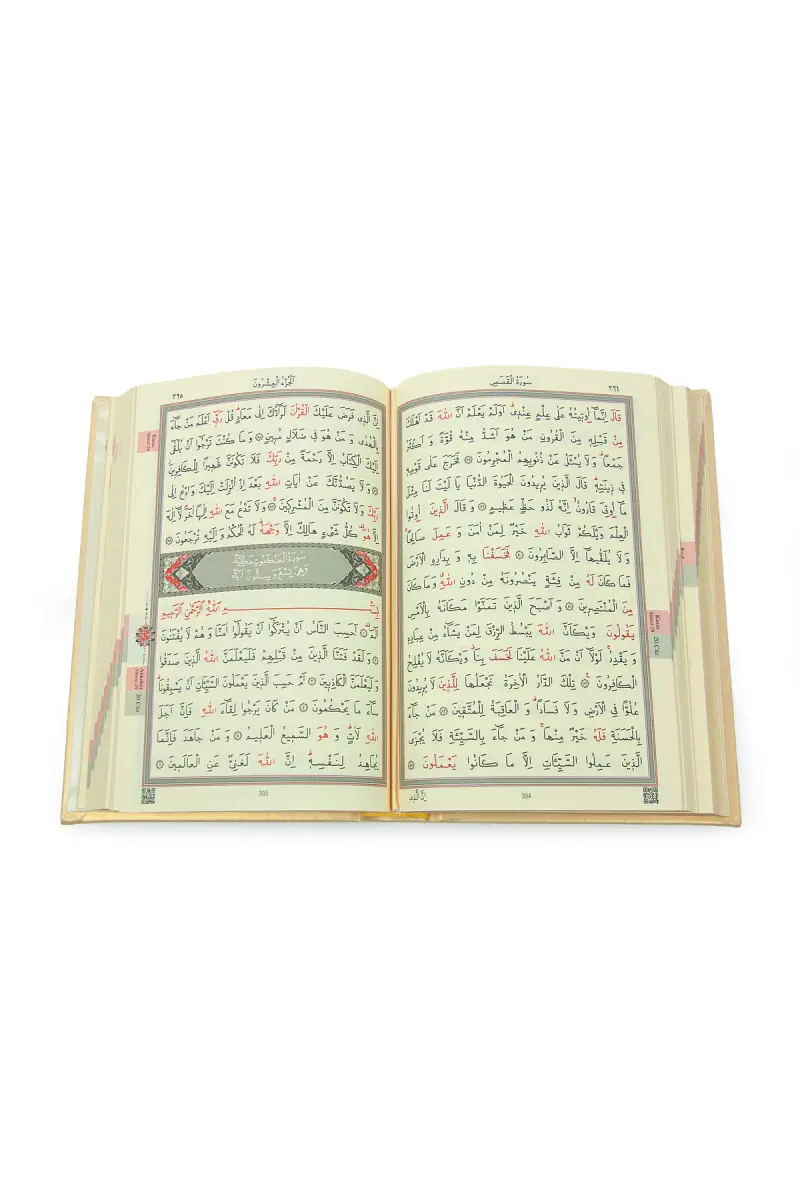 سُورَةُ الْقَصَصِ
٣٩٤
قَالَ اِنَّمَٓا اُو۫ت۪يتُهُ عَلٰى عِلْمٍ عِنْد۪يۜ اَوَلَمْ يَعْلَمْ اَنَّ اللّٰهَ قَدْ اَهْلَكَ
مِنْ قَبْلِه۪ مِنَ الْقُرُونِ مَنْ هُوَ اَشَدُّ مِنْهُ قُوَّةً وَ اَكْثَرُ
جَمْعًاۜ وَ لَا يُسْئَلُ عَنْ ذُنُوبِهِمُ الْمُجْرِمُونَ ۞ فَخَرَجَ عَلٰى قَوْمِه۪
ف۪ي ز۪ينَتِه۪ۜ قَالَ الَّذ۪ينَ يُر۪يدُونَ الْحَيٰوةَ الدُّنْيَا يَا لَيْتَ لَنَا مِثْلَ
مَٓا اُو۫تِيَ قَارُونُۙ اِنَّهُ لَذُو حَظٍّ عَظ۪يمٍ ۞ وَ قَالَ الَّذ۪ينَ اُو۫تُوا
الْعِلْمَ وَيْلَكُمْ ثَوَابُ اللّٰهِ خَيْرٌ لِمَنْ اٰمَنَ وَ عَمِلَ صَالِحًاۚ
وَ لَا يُلَقّٰيهَٓا اِلَّا الصَّابِرُونَ ۞ فَخَسَفْنَا بِه۪ وَ بِدَارِهِ الْاَرْضَ
فَمَا كَانَ لَهُ مِنْ فِئَةٍ يَنْصُرُونَهُ مِنْ دُونِ اللّٰهِۗ وَ مَا كَانَ
مِنَ الْمُنْتَصِر۪ينَ ۞ وَ اَصْبَحَ الَّذ۪ينَ تَمَنَّوْا مَكَانَهُ بِالْاَمْسِ
يَقُولُونَ وَيْكَاَنَّ اللّٰهَ يَبْسُطُ الرِّزْقَ لِمَنْ يَشَٓاءُ مِنْ عِبَادِه۪
وَ يَقْدِرُۚ لَوْلَٓا اَنْ مَنَّ اللّٰهُ عَلَيْنَا لَخَسَفَ بِنَاۜ وَيْكَاَنَّهُ لَا يُفْلِحُ
الْكَافِرُونَ ۞ تِلْكَ الدَّارُ الْاٰخِرَةُ نَجْعَلُهَا لِلَّذ۪ينَ لَا يُر۪يدُونَ
عُلُوًّا فِي الْاَرْضِ وَ لَا فَسَادًاۜ وَ الْعَاقِبَةُ لِلْمُتَّق۪ينَ ۞ مَنْ جَٓاءَ
بِالْحَسَنَةِ فَلَهُ خَيْرٌ مِنْهَاۚ وَ مَنْ جَٓاءَ بِالسَّيِّئَةِ فَلَا يُجْزَى
الَّذ۪ينَ عَمِلُوا السَّيِّـَٔاتِ اِلَّا مَا كَانُوا يَعْمَلُونَ ۞
394
اِنَّ الَّذ۪ي
Kasas
Sûresi 28
20.Cüz
اَلْجُزْءُ الْعِشْرُونَ
٣٩٥
اِنَّ الَّذ۪ي فَرَضَ عَلَيْكَ الْقُرْاٰنَ لَرَٓادُّكَ اِلٰى مَعَادٍۜ قُلْ رَبّ۪ٓي اَعْلَمُ مَنْ جَٓاءَ
بِالْهُدٰى وَ مَنْ هُوَ ف۪ي ضَلَالٍ مُب۪ينٍ ۞ وَ مَا كُنْتَ تَرْجُٓوا اَنْ يُلْقٰٓى
اِلَيْكَ الْكِتَابُ اِلَّا رَحْمَةً مِنْ رَبِّكَ فَلَا تَكُونَنَّ ظَه۪يرًا لِلْكَافِر۪ينَۘ
۞ وَ لَا يَصُدُّنَّكَ عَنْ اٰيَاتِ اللّٰهِ بَعْدَ اِذْ اُنْزِلَتْ اِلَيْكَ وَ ادْعُ اِلٰى
رَبِّكَ وَ لَا تَكُونَنَّ مِنَ الْمُشْرِك۪ينَۚ ۞ وَ لَا تَدْعُ مَعَ اللّٰهِ اِلٰهًا اٰخَرَۢ لَٓا اِلٰهَ
اِلَّا هُوَ۠ كُلُّ شَيْءٍ هَالِكٌ اِلَّا وَجْهَهُۜ لَهُ الْحُكْمُ وَ اِلَيْهِ تُرْجَعُونَ ۞
سُورَةُ الْعَنْكَبُوتِ مَكِّيَّةٌ
وَهِيَ تِسْعٌ وَ سِتُّونَ اٰيَةً
بِسْمِ اللّٰهِ الرَّحْمٰنِ الرَّح۪يمِ
الٓمٓۜ ۞ اَحَسِبَ النَّاسُ اَنْ يُتْرَكُٓوا اَنْ يَقُولُٓوا اٰمَنَّا وَ هُمْ لَا يُفْتَنُونَ
۞ وَ لَقَدْ فَتَنَّا الَّذ۪ينَ مِنْ قَبْلِهِمْ فَلَيَعْلَمَنَّ اللّٰهُ الَّذ۪ينَ صَدَقُوا
وَ لَيَعْلَمَنَّ الْكَاذِب۪ينَ ۞ اَمْ حَسِبَ الَّذ۪ينَ يَعْمَلُونَ السَّيِّـَٔاتِ اَنْ يَسْبِقُونَاۜ
سَٓاءَ مَا يَحْكُمُونَ ۞ مَنْ كَانَ يَرْجُوا لِقَٓاءَ اللّٰهِ فَاِنَّ اَجَلَ
اللّٰهِ لَاٰتٍۜ وَ هُوَ السَّم۪يعُ الْعَل۪يمُ ۞ وَ مَنْ جَاهَدَ فَاِنَّمَا
يُجَاهِدُ لِنَفْسِه۪ۜ اِنَّ اللّٰهَ لَغَنِيٌّ عَنِ الْعَالَم۪ينَ ۞
395
Kasas
Sûresi 28
Ankebût
Sûresi 29
20.Cüz